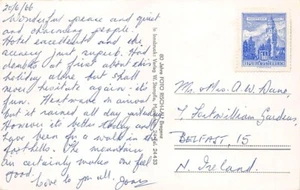 20/6/66
Wonderful peace and quiet
and charming people.
Hotel excellent and the
scenery just superb. Had
doubts at first about this
holiday alone but shall
never hesitate again - its
fun. Heatwave on arrival
but it rained all day yesterday
However is better today and
have been for a walk in the
foothills. The mountain
air certainly makes me feel
good.
Love to you all.
60 Jahre FOTO RISCH-LAU Bregenz
Mr. & Mrs. A. W. Dane,
7 Fortwilliam Gardens,
BELFAST, 15
N. Ireland